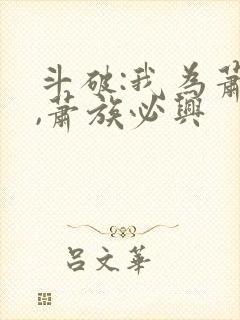 斗破:我为萧
,萧族必兴
吕文华